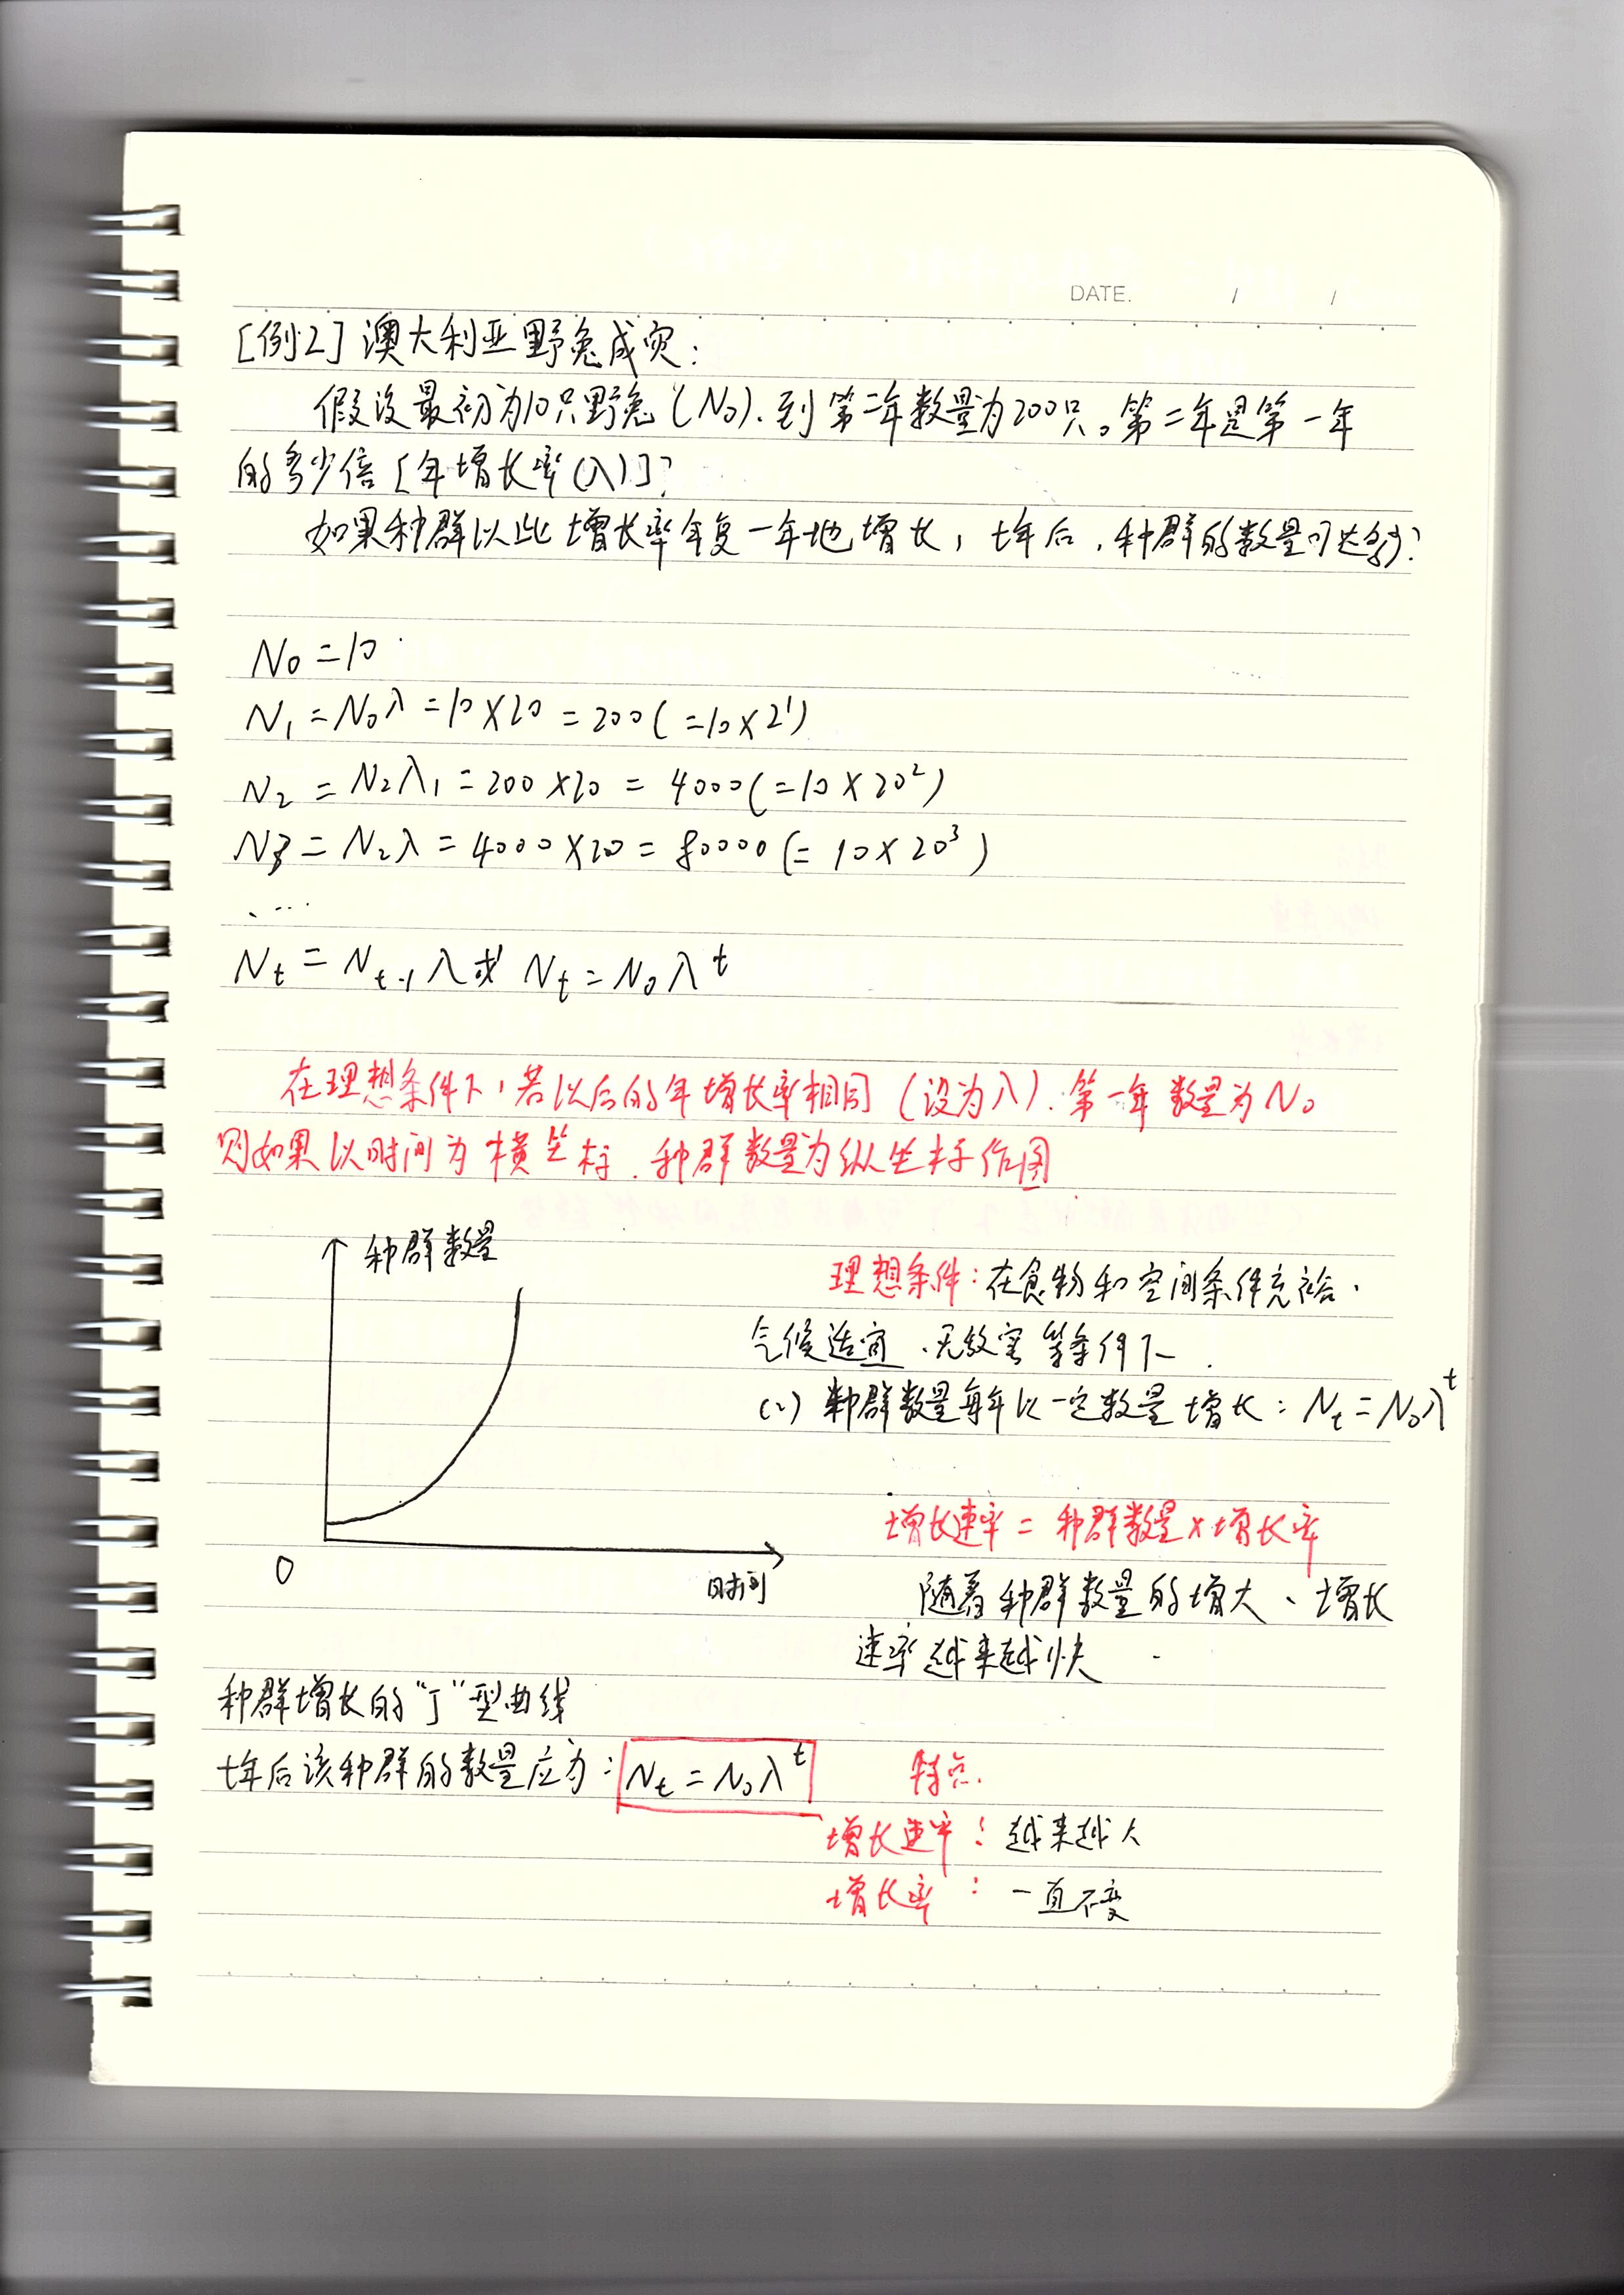 DATE. / /
[例2] 澳大利亚野兔成灾:
假设最初为10只野兔(N₀).到第二年数量为200只。第二年是第一年
的多少倍[年增长率(λ)]?
如果种群以此增长率年复一年地增长,t年后,种群的数量可达多少?
N₀=10
N₁=N₀λ=10×20=200(=10×2¹)
N₂=N₂λ₁=200×20=4000(=10×20²)
N₃=N₂λ=4000×20=80000(=10×20³)
....
Nt=Nt-1λ或 Nt=N₀λᵗ
在理想条件下,若以后的年增长率相同(设为λ).第一年数量为N₀
则如果以时间为横坐标.种群数量为纵坐标作图
种群数量
理想条件:在食物和空间条件充裕.
气候适宜.无敌害等条件下.
(2)种群数量每年以一定数量增长:Nt=N₀λᵗ
增长速率=种群数量×增长率
O
时间
随着种群数量的增大、增长
速率越来越快
种群增长的“J”型曲线
t年后该种群的数量应为:Nt=N₀λᵗ
特点.
增长速率:越来越大
增长率:一直不变